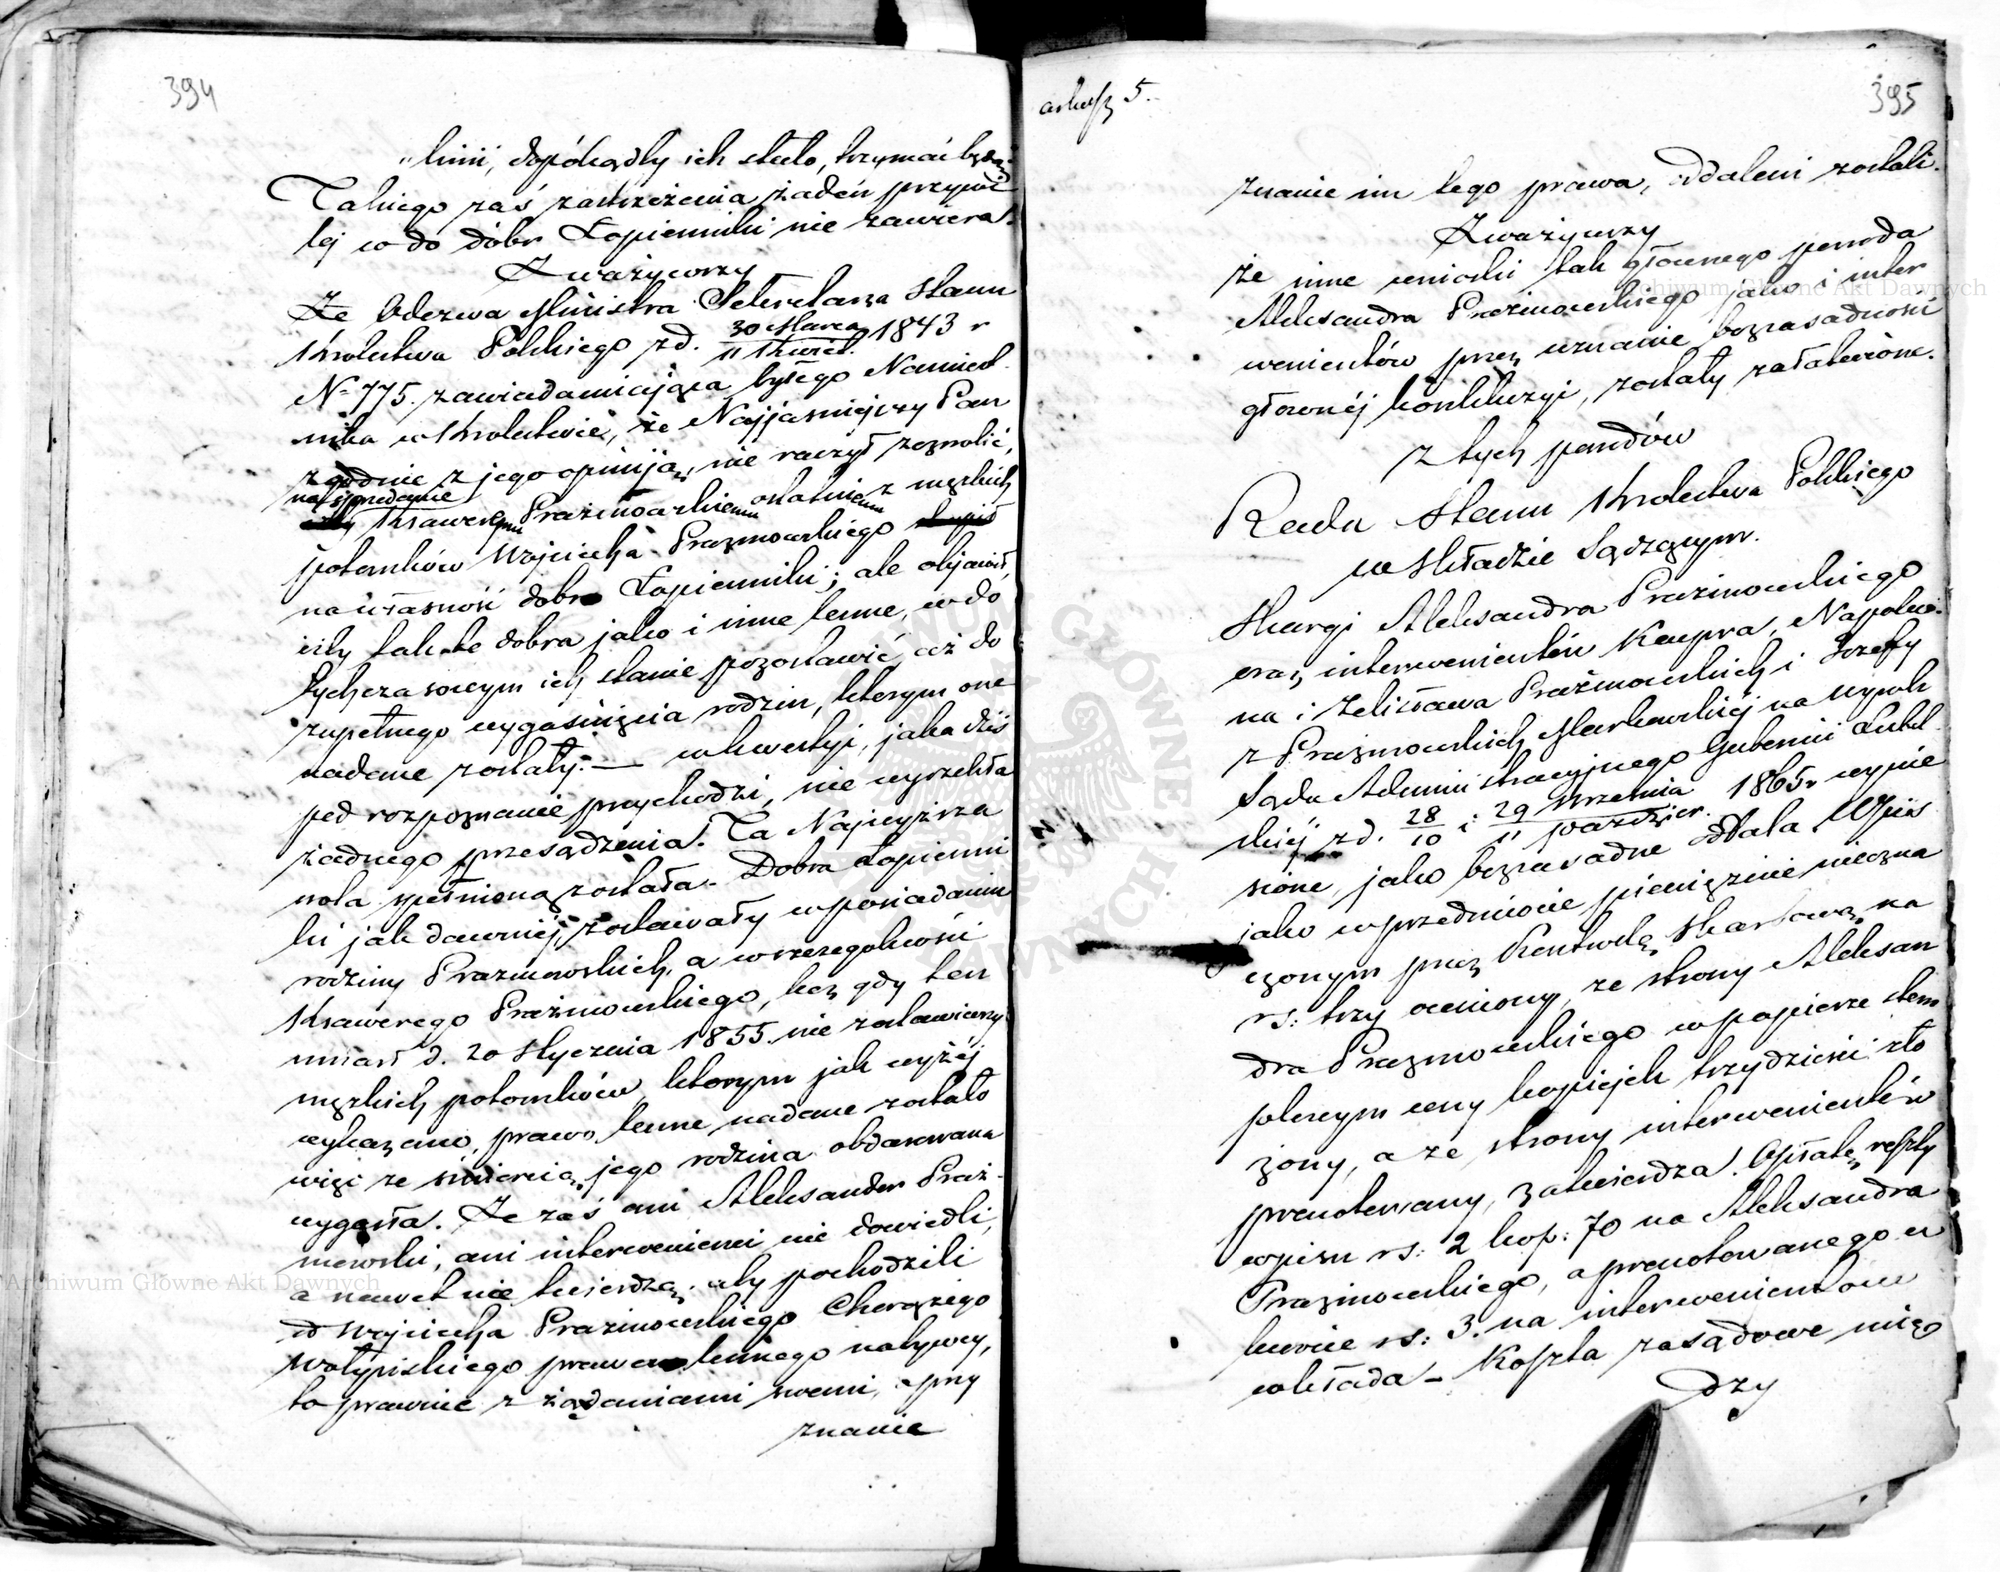 394
"linii, dopókądby ich stało, trzymać będą."
Takiego zaś zastrzeżenia żaden przywi
lej co do dóbr Łopienniki nie zawiera.
Zważywszy
Że Odezwa Ministra Sekretarza Stanu
Królestwa Polskiego z d. 30 Marca / 11 Kwiet. 1843 r
Nº 775. zawiadamiająca byłego Namiest
nika w Królestwie, że Najjaśniejszy Pan
zgodnie z jego opiniją, nie raczył zezwolić,
na sprzedanie
Ksaweremu Prażmowskiemu ostatniemu z męzkich
potomków Wojciecha Prazmowskiego
na własność dobr Łopienniki; ale objawił,
iżby takowe dobra jako i inne lenne, w do
tychczasowym ich stanie pozostawić, aż do
zupełnego wygaśnięcia rodzin, którym one
nadane zostały. — w kwestyi, jaka dziś
pod rozpoznanie przychodzi, nie wyrzekła
żadnego przesądzenia. Ta Najwyższa
wola spełnioną została. Dobra Łopienni
ki jak dawniej, zostawały w posiadaniu
rodziny Prazmowskich, a w szczególności
Ksawerego Prażmowskiego, lecz gdy ten
umarł d. 20 Stycznia 1855. nie zostawiwszy
męzkich potomków, którym jak wyżej
wykazano, prawo lenne nadane zostało
więc ze śmiercią jego rodzina obdarowana
wygasła. Że zaś ani Aleksander Praż-
mowski, ani interwenienci nie dowiedli,
a nawet nie twierdzą, aby pochodzili
od Wojciecha Prazmowskiego Chorążego
Wołyńskiego prawa lennego nabywcy,
to prawnie z żądaniami swemi, o przy
znanie
arkusz 5.
395
znanie im tego prawa, oddaleni zostali.
Zważywszy
że inne wnioski tak głównego powoda
Aleksandra Prażmowskiego, jako i inter
wenientów przez uznanie bezzasadności
głównéj konkluzyi, zostały załatwione.
Z tych powodów
Rada Stanu Królestwa Polskiego
w Składzie Sądzącym.
Skargi Aleksandra Prażmowskiego
oraz interwenientów Kacpra, Napoleo-
na i Zelisława Prażmowskich i Józefy
z Prażmowskich Markowskiéj na wyrok
Sądu Administracyjnego Gubernii Lubel
skiéj z d. 28/10 i 29 Września / 11 Paździer. 1865 r wynie
sione, jako bezzasadne oddala. Wpis
jako w przedmiocie pieniężnie nieozna
czonym przez Kontrolę Skarbową na
rs: trzy oceniony, ze strony Aleksan
dra Prazmowskiego w papierze stem
plowym ceny kopiejek trzydzieści zło
żony, a ze strony interwenientów
prenotowany, zatwierdza. Opłatę reszty
wpisu rs: 2 kop: 70 na Aleksandra
Prazmowskiego, a prenotowanego w
kwocie rs: 3. na interwenientów
wkłada – Koszta zasądzone mię
dzy
Archiwum Główne Akt Dawnych
Archiwum Główne Akt Dawnych